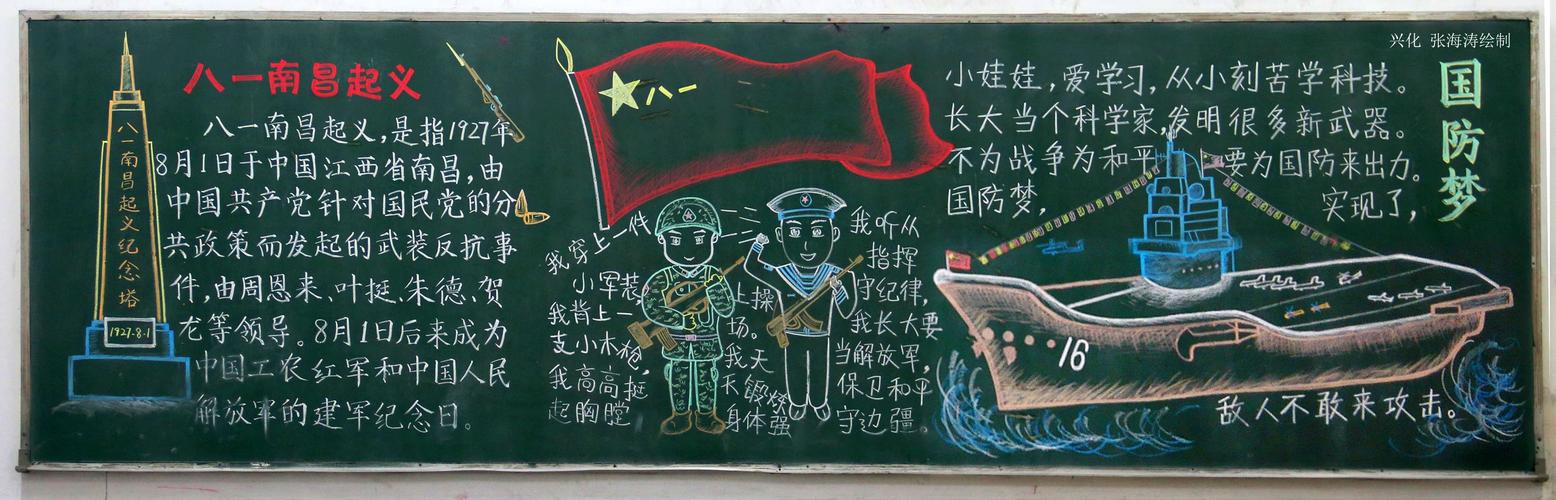 八一南昌起义
八一南昌起义,是指1927年
8月1日于中国江西省南昌,由
中国共产党针对国民党的分
共政策而发起的武装反抗事
件,由周恩来、叶挺、朱德、贺
龙等领导。8月1日后来成为
中国工农红军和中国人民
解放军的建军纪念日。
八一南昌起义纪念塔
1927.8.1
八一
我穿上一件
小军装
我背上一
支小木枪,
我高高挺
起胸膛
上操
场。
我天
天锻炼
身体强
我听从
指挥
守纪律,
我长大要
当解放军,
保卫和平
守边疆。
兴化 张海涛绘制
国防梦
小娃娃,爱学习,从小刻苦学科技。
长大当个科学家,发明很多新武器。
不为战争为和平 要为国防来出力。
国防梦, 实现了,
敌人不敢来攻击。
16